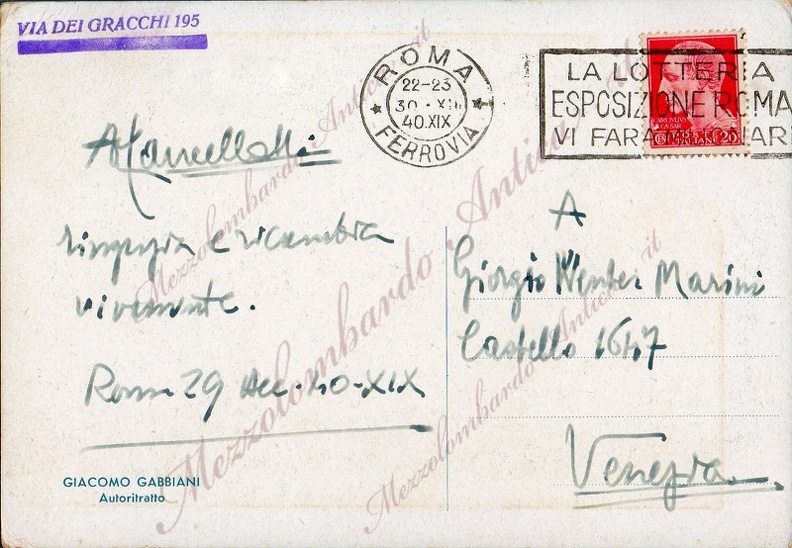 VIA DEI GRACCHI 195
ROMA
22-23
30 · XII
40.XIX
FERROVIA
LA LOTTERIA
ESPOSIZIONE ROMA
VI FARÀ
20
ringrazia e ricambia
vivamente.
Roma 29 dec. 40-XIX
A
Giorgio Wenter Marini
Castello 1647
Venezia
GIACOMO GABBIANI
Autoritratto
Mezzolombardo Antica
Mezzolombardo Antica
Mezzolombardo Antica .it